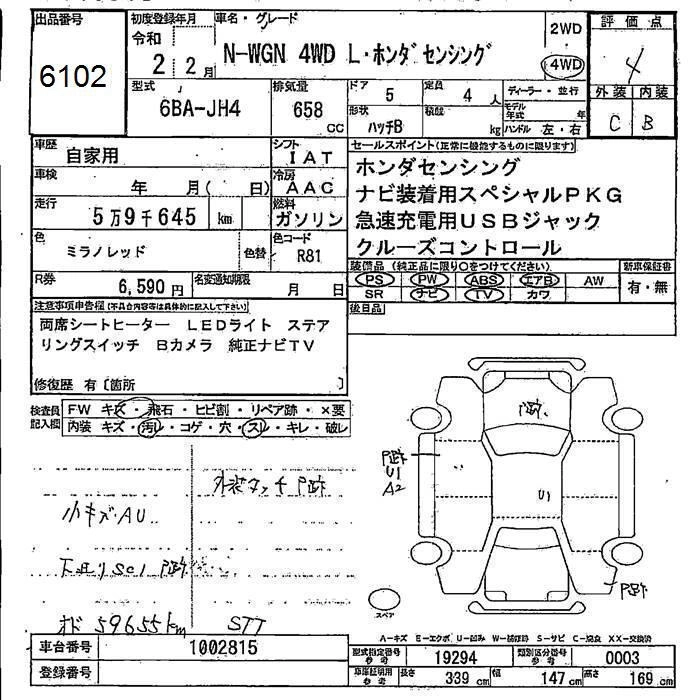 出品番号
6102
初度登録年月
令和
2 2月
車名・グレード
N-WGN 4WD L・ホンダセンシング
2WD
4WD
評価点
4
外装 内装
C B
型式
6BA-JH4
排気量
658
cc
ドア
5
定員
4 人
形状
ハッチB
積載
kg
ディーラー・並行
モデル年式 年
ハンドル 左・右
車歴
自家用
シフト
IAT
車検
年 月( 日)
冷房
AAC
走行
5万9千645 km
燃料
ガソリン
色
ミラノレッド
色替
色コード
R81
R券
6,590円
名変通知期限
月 日
セールスポイント(正常に機能するものに限ります)
ホンダセンシング
ナビ装着用スペシャルPKG
急速充電用USBジャック
クルーズコントロール
装備品(純正品に限り○をつけてください)
PS PW ABS エアB AW
SR ナビ TV カワ
新車保証書
有・無
後日品
注意事項申告欄(不具合内容等は具体的に記入して下さい)
両席シートヒーター LEDライト ステア
リングスイッチ Bカメラ 純正ナビTV
修復歴 有〔箇所 〕
検査員記入欄
FW キズ・飛石・ヒビ割・リペア跡・×要
内装 キズ・汚レ・コゲ・穴・スレ・キレ・破レ
外装タッチP跡
小キズAU
下廻りSC1 P跡
オド 59655km
STT
P跡
P跡
U1
A2
U1
P跡
スペア
A-キズ E-エクボ U-凹み W-補修跡 S-サビ C-腐食 XX-交換済
車台番号
1002815
登録番号
型式指定番号 参考
19294
類別区分番号 参考
0003
車庫証明用 参考
長さ
339 cm
幅
147 cm
高さ
169 cm